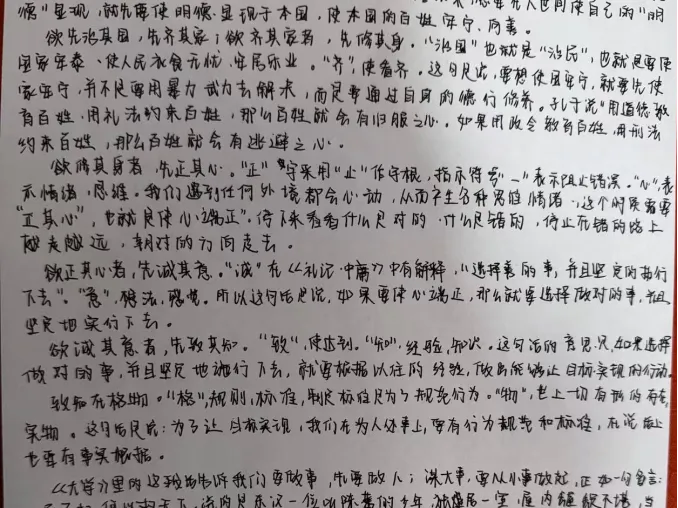 德"显现，就先要使明德显现于本国，使本国的百姓安宁、向善。
欲先治其国，先齐其家；欲齐其家者，先修其身。"治国"也就是"治民"，也就是要使
国家安泰、使人民衣食无忧、安居乐业。"齐"，使看齐。这句是说，要想使国安宁，就要先使
家安宁，并不是要用暴力武力去解决，而是要通过自身的德行修养。孔子说"用道德教
育百姓，用礼法约束百姓，那么百姓就会有归服之心。如果用政令教育百姓，用刑法
约束百姓，那么百姓就会有逃避之心。
欲修其身者，先正其心。"正"字采用"止"作字根，指示符号"一"表示阻止错误。"心"，表
示情绪、思维。我们遇到任何外境都会心动，从而产生各种思维情绪，这个时候需要
"正其心"，也就是使心端正"。停下来看看什么是对的，什么是错的，停止在错的路上
越走越远，朝对的方向走去。
欲正其心者，先诚其意。"诚"在《礼记·中庸》中有解释，"选择善的事，并且坚定的执行
下去"。"意"，想法，感觉。所以这句话是说，如果要使心端正，那么就要选择做对的事，并且
坚定地实行下去。
欲诚其意者，先致其知。"致"，使达到。"知"，经验，知识。这句话的意思是，如果选择
做对的事，并且坚定地施行下去，就要根据以往的经验，做出能够让目标实现的行动。
致知在格物。"格"，规则，标准，制定标准是为了规范行为。"物"，世上一切有形的存在，
实物。这句话是说：为了让目标实现，我们在为人处事上，要有行为规范和标准，在说话上
也要有事实根据。
《大学》里的这段话告诉我们要做事，先要做人；谋大事，要从小事做起，正如一句名言：